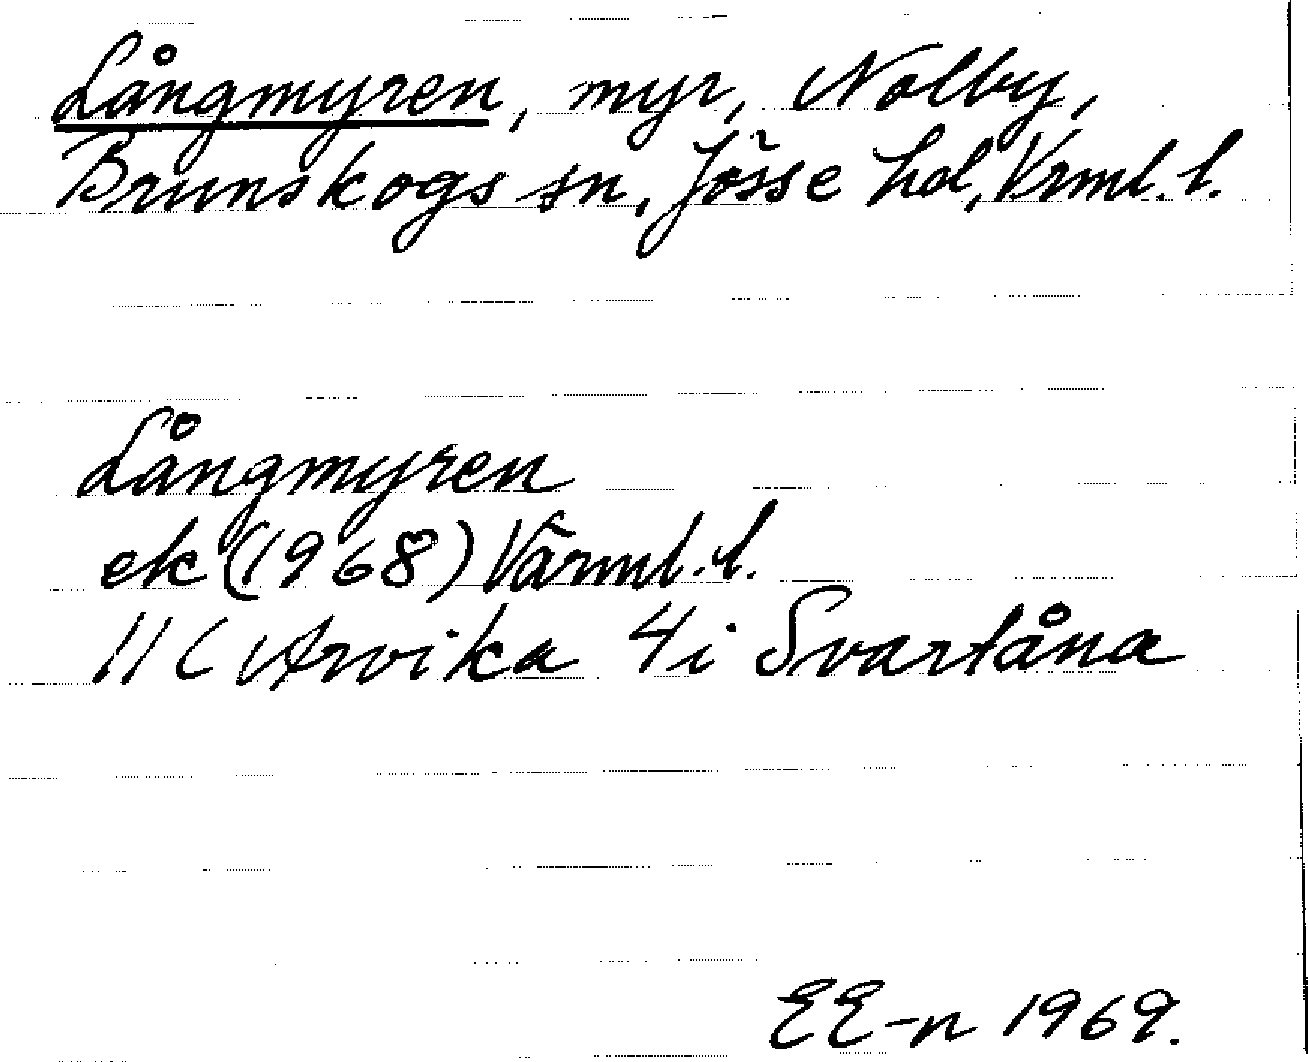 Långmyren, myr, Nolby,
Brunskogs sn, Jösse hd, Vrml. l.
Långmyren
ek (1968) Värml. l.
11C Arvika 4i Svartåna
EE-n 1969.